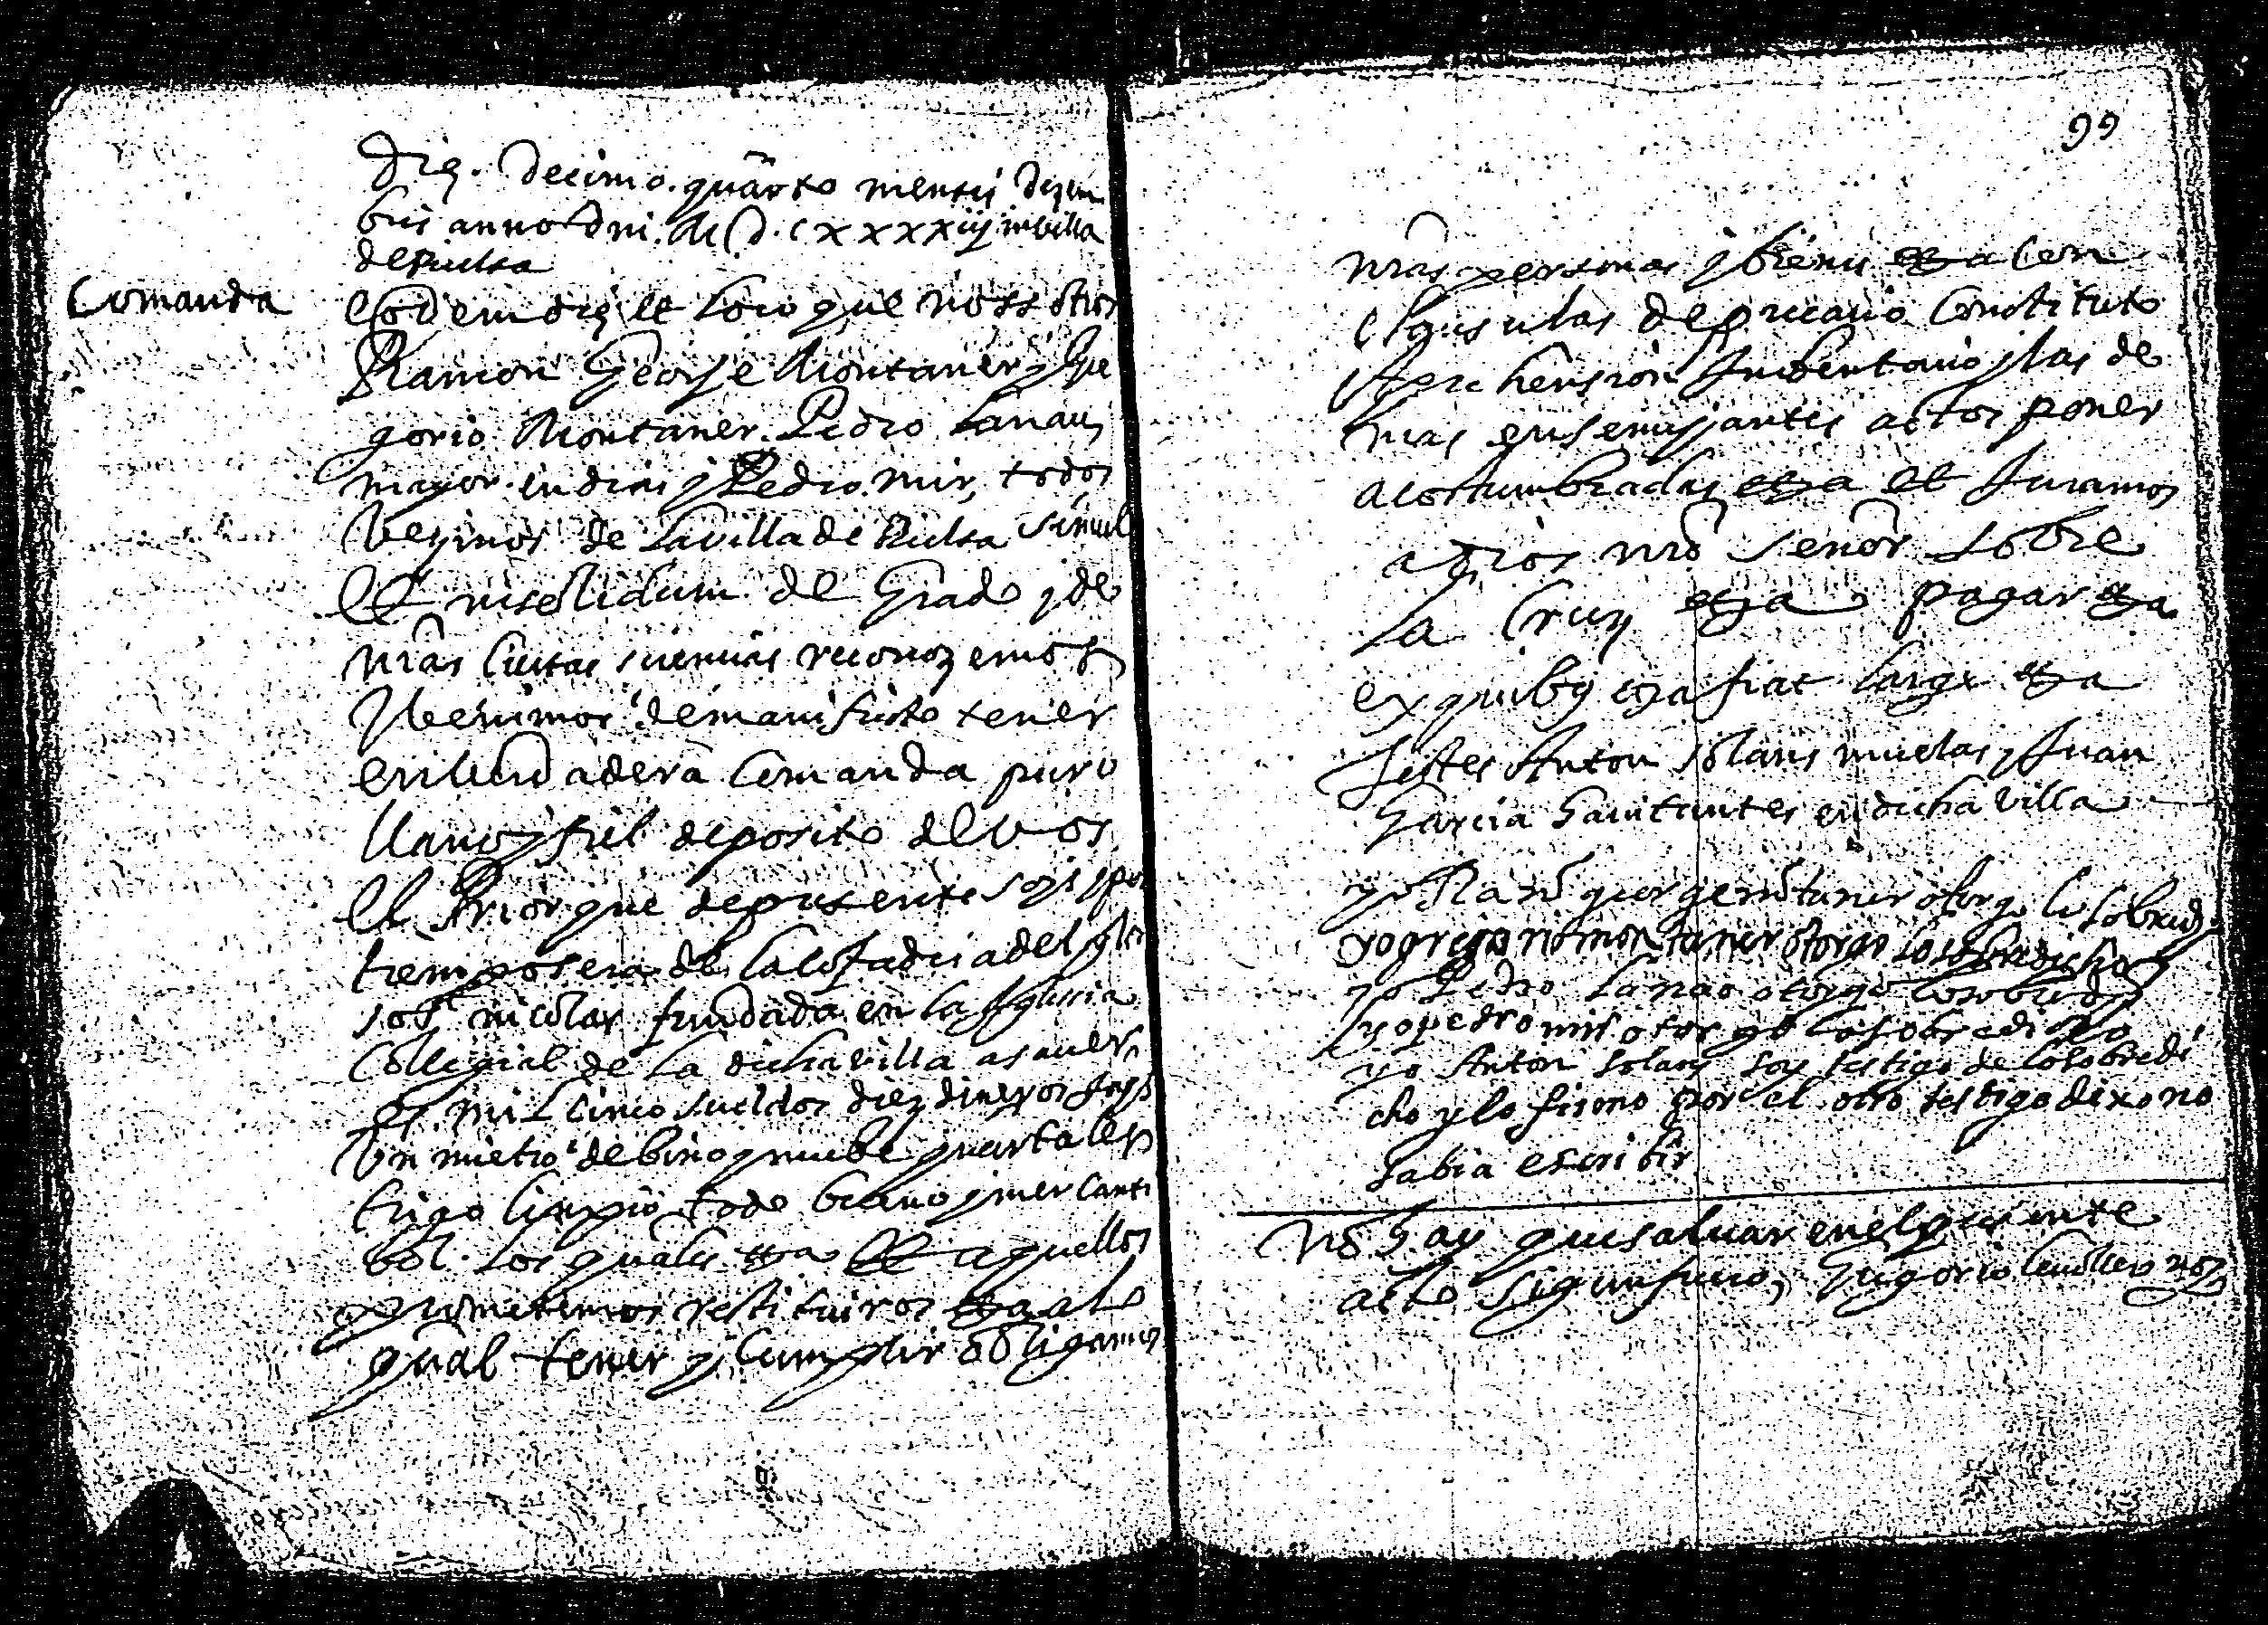 Die. Decimo. quarto mensis Dezem
bris anno Dni. M.D.CXXXXiij in villa
de
Comanda
Eodem die et loco que nossotros
Ramon George Montaner y Gre
gorio Montaner. Pedro Lanau
mayor en dias y Pedro mir, todos
Vezinos de La villa de simul
Et insolidum de Grado y de
nras ciertas sciencias reconozemos
y Venimos de manifiesto tener
en Verdadera Comanda puro
llano y fiel deposito de Vos
El Prior que de presente soys y por
tiempo sera de la Cofadria del glo
so St nicolas fundada en la Iglesia
Collegial de la dicha villa a saver
es mil cinco sueldos diez dineros
Vn mietro de bino y nuebe quartales
trigo limpio todo bueno y mercanti
bol. Los quales etza Et aquellos
prometemos restituiros etza a lo
qual tener y Cumplir obligamos
99
nras personas y bienes etza con
Clausulas de precario Constituto
Aprehension Inventario y las de
mas en semejantes actos poner
acostumbradas etza et Juramos
a Dios nro señor sobre
La Cruz etza pagar etza
ex quibus etza fiat large etza
Testes Anton solans muelas y Juan
Garcia havitantes en dicha Villa
yo Ramon gorge montaner otorgo lo sobred
yo gregorio montaner otorgo lo sobredicho
yo Pedro Lanao otorgo lo sobredi
yo pedro mir otorgo lo sobredicho
yo Anton solans soy testigo de lo sobredi
cho y lo firmo por el otro testigo dixo no
sabia escribir
No hay que saluar en el presente
acto sigun fuero, Gregorio not